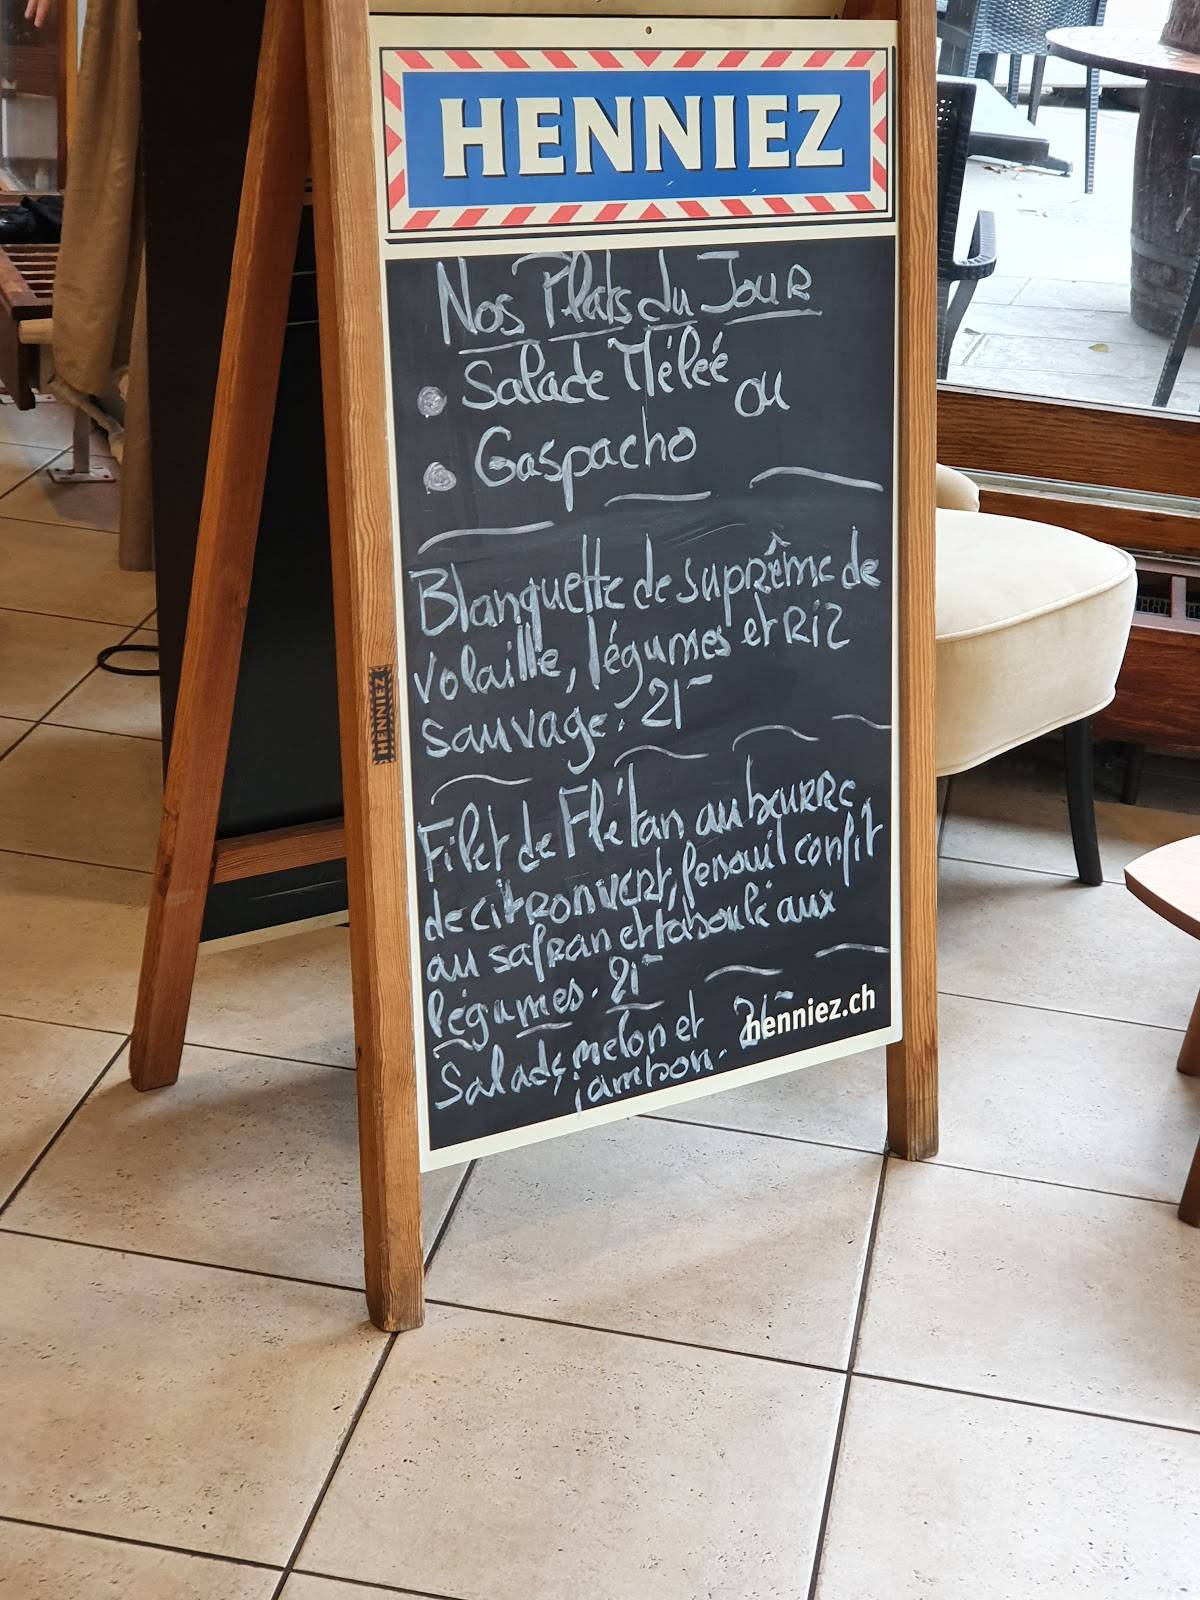 HENNIEZ
Nos Plats du Jour
Salade Mêleé ou
Gaspacho
Blanquette de suprême de
volaille, légumes et Riz
sauvage. 21-
Filet de Flétan au beurre
de citron vert, fenouil confit
au safran et taboulé aux
légumes. 21-
Salade, melon et 21-
jambon.
henniez.ch
HENNIEZ